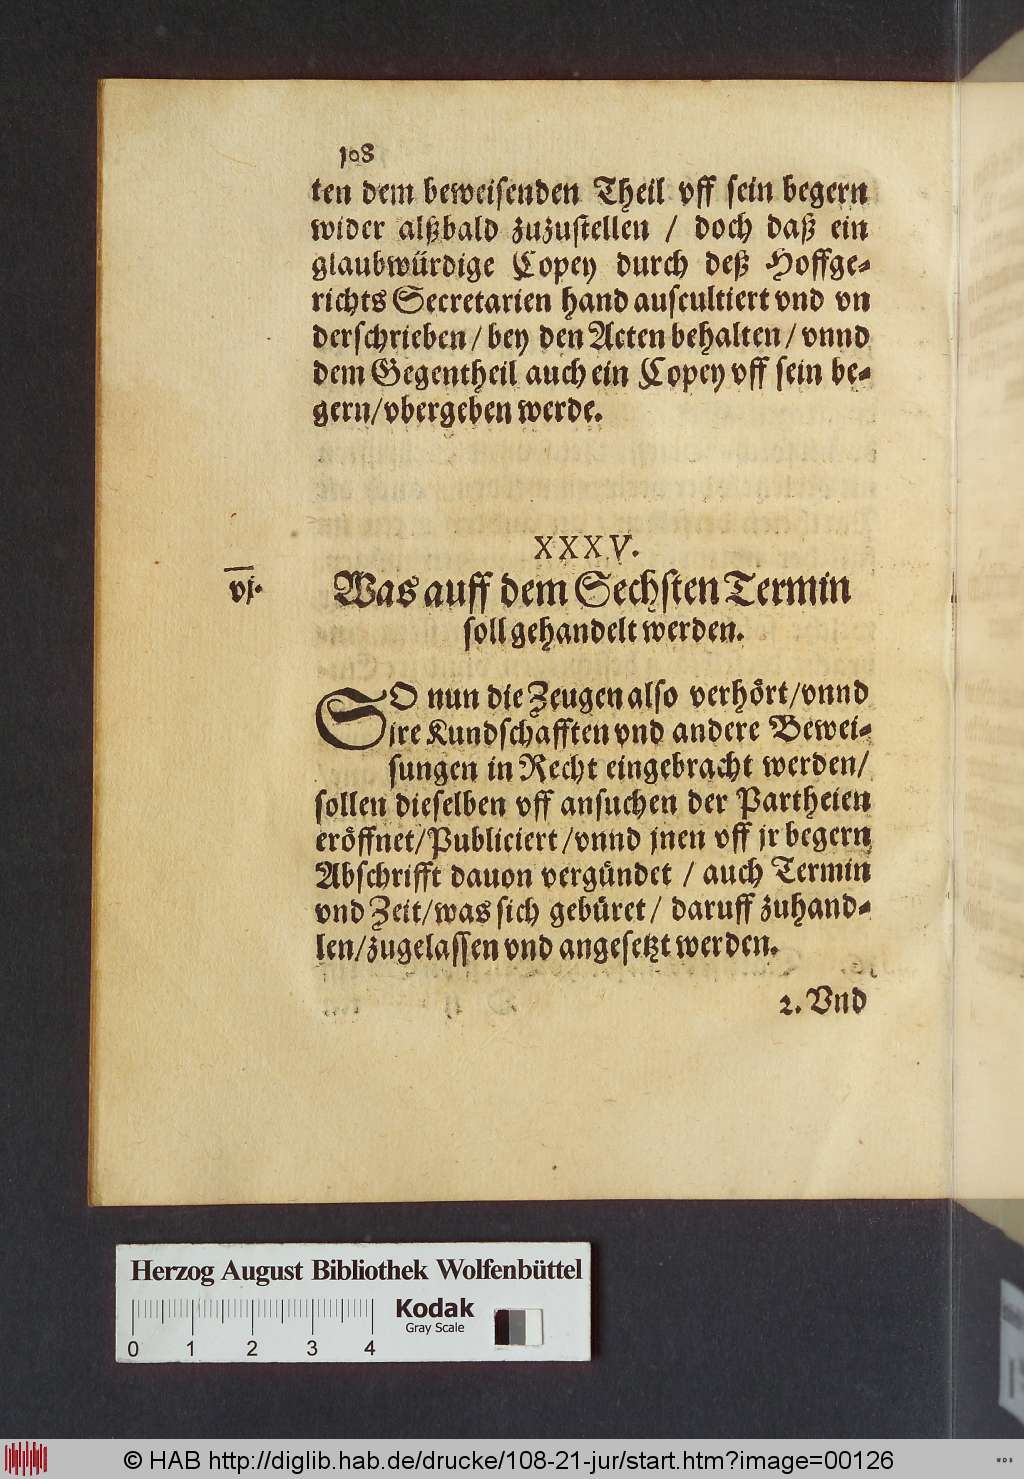 108
ten dem beweisenden Theil vff sein begern
wider alßbald zuzustellen / doch daß ein
glaubwürdige Copey durch deß Hoffge-
richts Secretarien hand auscultiert vnd vn
derschrieben / bey den Acten behalten / vnnd
dem Gegentheil auch ein Copey vff sein be-
gern/vbergeben werde.
XXXV.
vj.
Was auff dem Sechsten Termin
soll gehandelt werden.
SO nun die Zeugen also verhört/vnnd
jre Kundschafften vnd andere Bewei-
sungen in Recht eingebracht werden/
sollen dieselben vff ansuchen der Partheien
eröffnet/Publiciert/vnnd jnen vff jr begern
Abschrifft dauon vergündet / auch Termin
vnd Zeit/was sich gebüret/ daruff zuhand-
len/zugelassen vnd angesetzt werden.
2. Vnd
Herzog August Bibliothek Wolfenbüttel
Kodak
Gray Scale
0 1 2 3 4
© HAB http://diglib.hab.de/drucke/108-21-jur/start.htm?image=00126
WDB